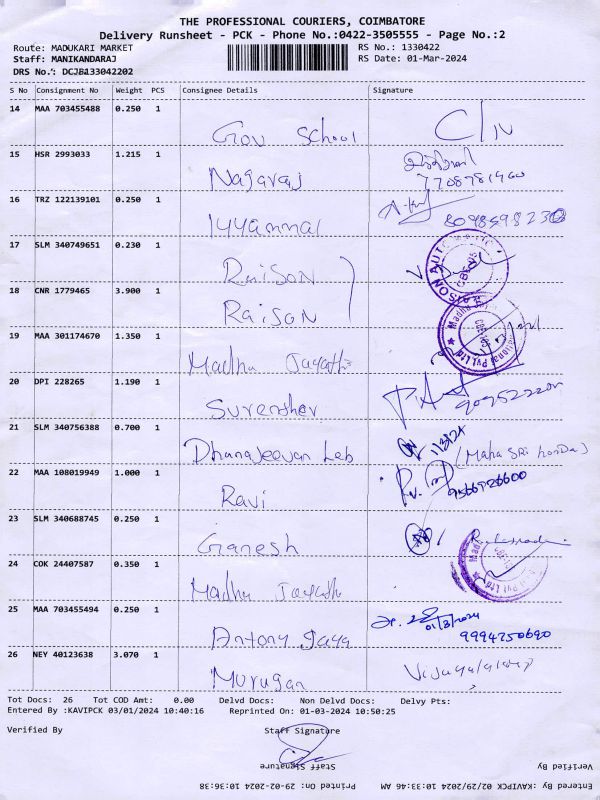 THE PROFESSIONAL COURIERS, COIMBATORE
Delivery Runsheet - PCK - Phone No.:0422-3505555 - Page No.:2
Route: MADUKARI MARKET RS No.: 1330422
Staff: MANIKANDARAJ RS Date: 01-Mar-2024
DRS No.: DCJB133042202
S No Consignment No Weight PCS Consignee Details Signature
14 MAA 703455488 0.250 1
Gov School
15 HSR 2993033 1.215 1
Nagaraj 7708781960
16 TRZ 122139101 0.250 1
Iyyammal
17 SLM 340749651 0.230 1
RAISON
18 CNR 1779465 3.900 1
RAISON
19 MAA 301174670 1.350 1
Madhu Jayathi
20 DPI 228265 1.190 1
Surendher
21 SLM 340756388 0.700 1
Dhanajeevan Leb 1/3/24 (Maha SRI honDa)
22 MAA 108019949 1.000 1
Ravi
23 SLM 340688745 0.250 1
Ganesh
24 COK 24407587 0.350 1
Madhu Jayathi
25 MAA 703455494 0.250 1
01/3/2024
Antony Jaya 9994750690
26 NEY 40123638 3.070 1
Murugan
Tot Docs: 26 Tot COD Amt: 0.00 Delvd Docs: Non Delvd Docs: Delvy Pts:
Entered By :KAVIPCK 03/01/2024 10:40:16 Reprinted On: 01-03-2024 10:50:25
Verified By Staff Signature
Verified By Staff Signature
Entered By :KAVIPCK 02/29/2024 10:33:46 AM Printed On: 29-02-2024 10:36:38